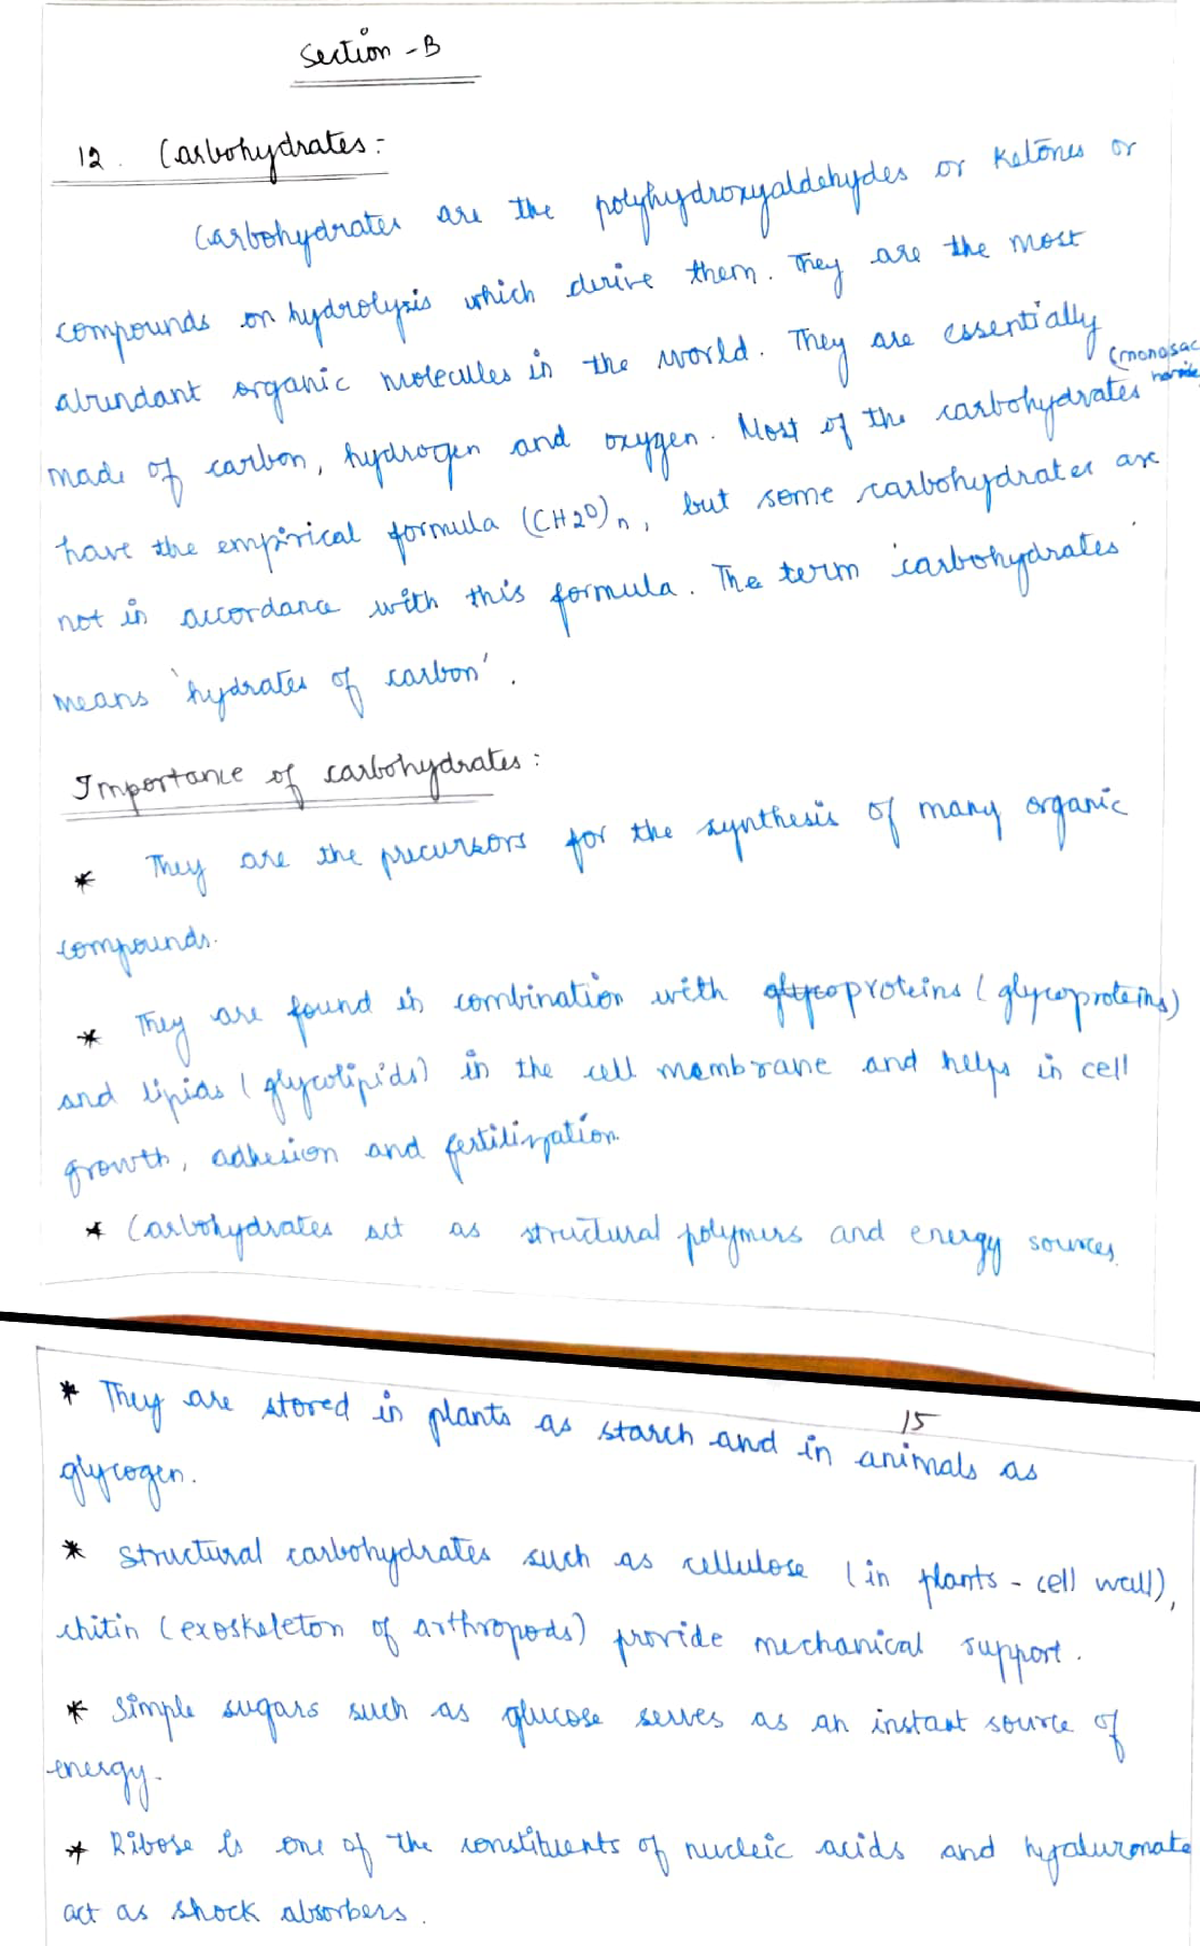 Section - B
12. Carbohydrates :-
Carbohydrates are the polyhydroxyaldehydes or Ketones or
compounds on hydrolysis which derive them. They are the most
abundant organic molecules in the world. They are essentially
made of carbon, hydrogen and oxygen. Most of the carbohydrates (monosac
haride
have the empirical formula (CH2O)n, but some carbohydrates are
not in accordance with this formula. The term 'carbohydrates'
means 'hydrates of carbon'.
Importance of carbohydrates :
* They are the precursors for the synthesis of many organic
compounds.
* They are found in combination with glycoproteins (glycoproteins)
and lipids (glycolipids) in the cell membrane and helps in cell
growth, adhesion and fertilization.
* Carbohydrates act as structural polymers and energy sources.
15
* They are stored in plants as starch and in animals as
glycogen.
* Structural carbohydrates such as cellulose (in plants - cell wall),
chitin (exoskeleton of arthropods) provide mechanical support.
* Simple sugars such as glucose serves as an instant source of
energy.
* Ribose is one of the constituents of nucleic acids and hyaluronate
act as shock absorbers.